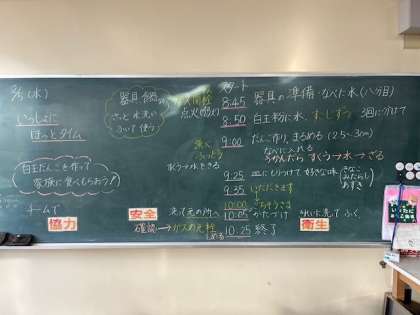 (水)
いっしょに
ほっとタイム
白玉だんごを作って
家族に食べもらおう!
チームで
協力
器具
さっと水洗い
ふいて使う
スタート
8:45 器具の準備・なべに水(八分目)
8:50 白玉粉に水、少しずつ 3回に分けて
9:00 だんご作り、まるめる
なべに入れる
うかんだら すくう→水→ざる
9:25 皿にもりつけて好きな味
きなこ
みたらし
あずき
9:35 いただきます
10:00 ごちそうさま
安全
洗って元の所へ 10:05 かたづけ
衛生
確認→ガスの元栓
10:25 終了